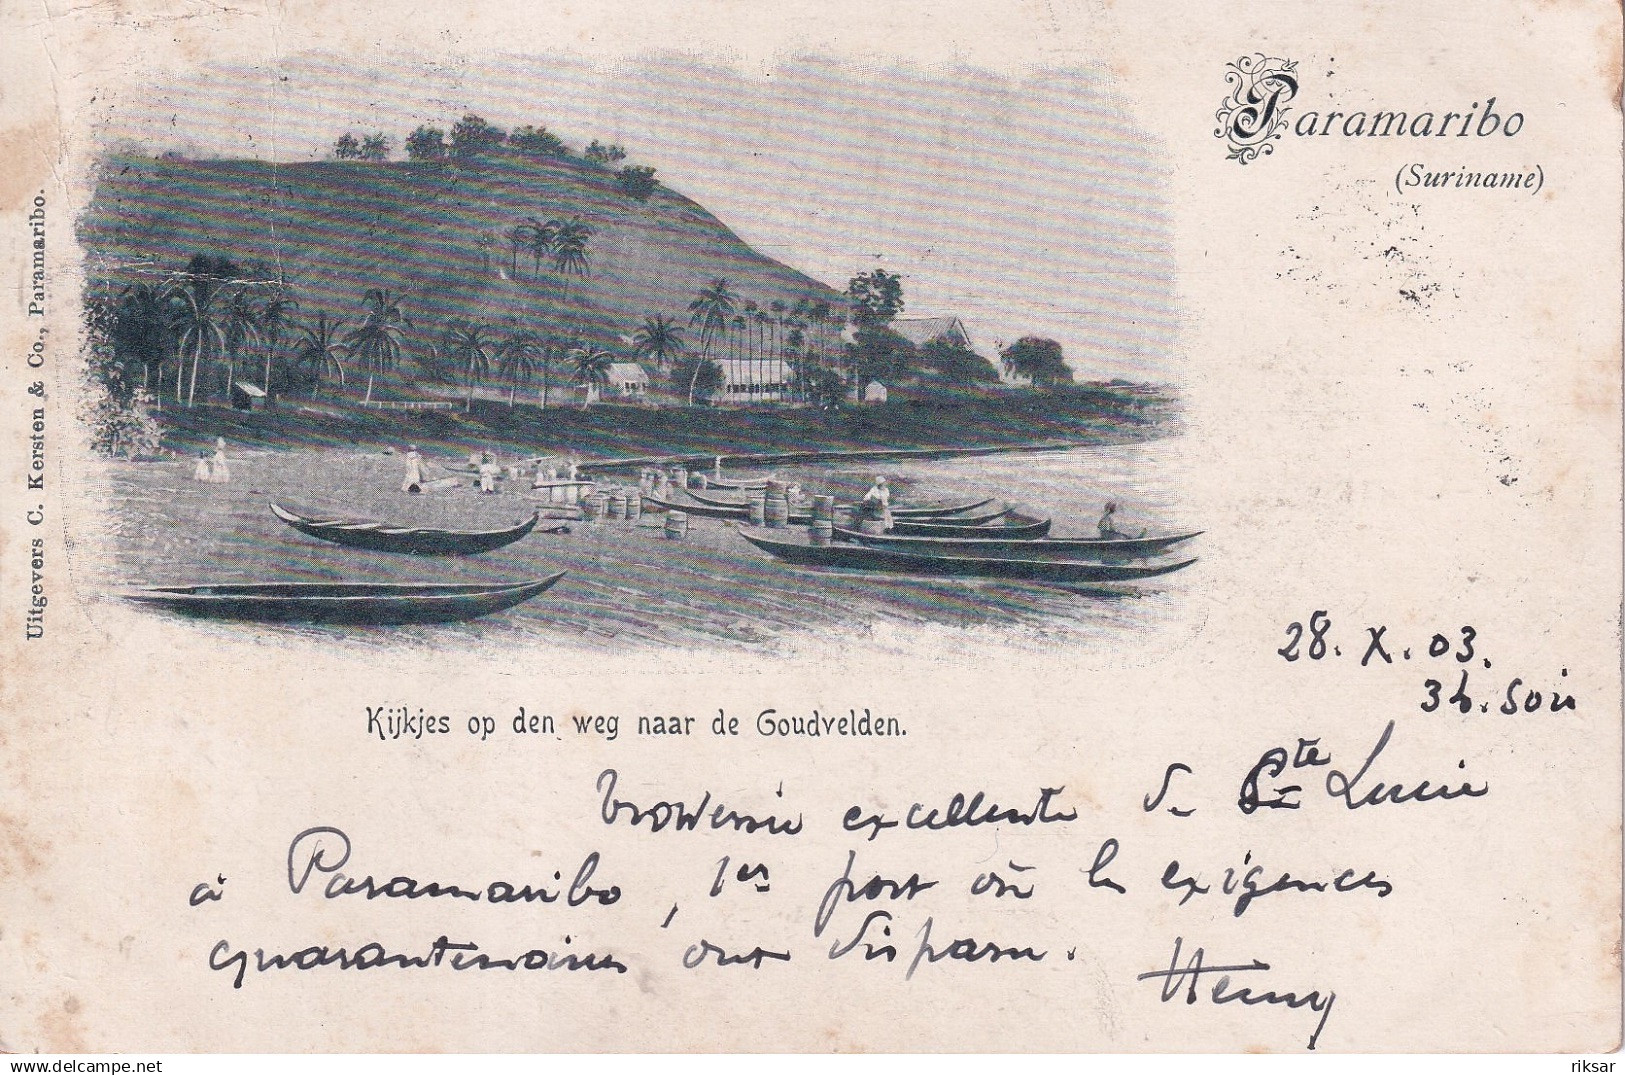 Paramaribo
(Suriname)
Uitgevers C. Kersten & Co., Paramaribo.
Kijkjes op den weg naar de Goudvelden.
28. X. 03.
3h. soir
traversée excellente de Ste Lucie
à Paramaribo, 1er port où les exigences
quarantenaires ont disparu.
Henry
delcampe.net
riksar